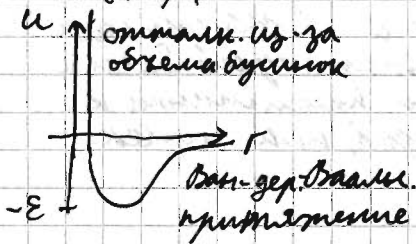 u
отталк. из-за
объема бусинок
r
Ван-дер-Ваальс.
-ε
притяжение